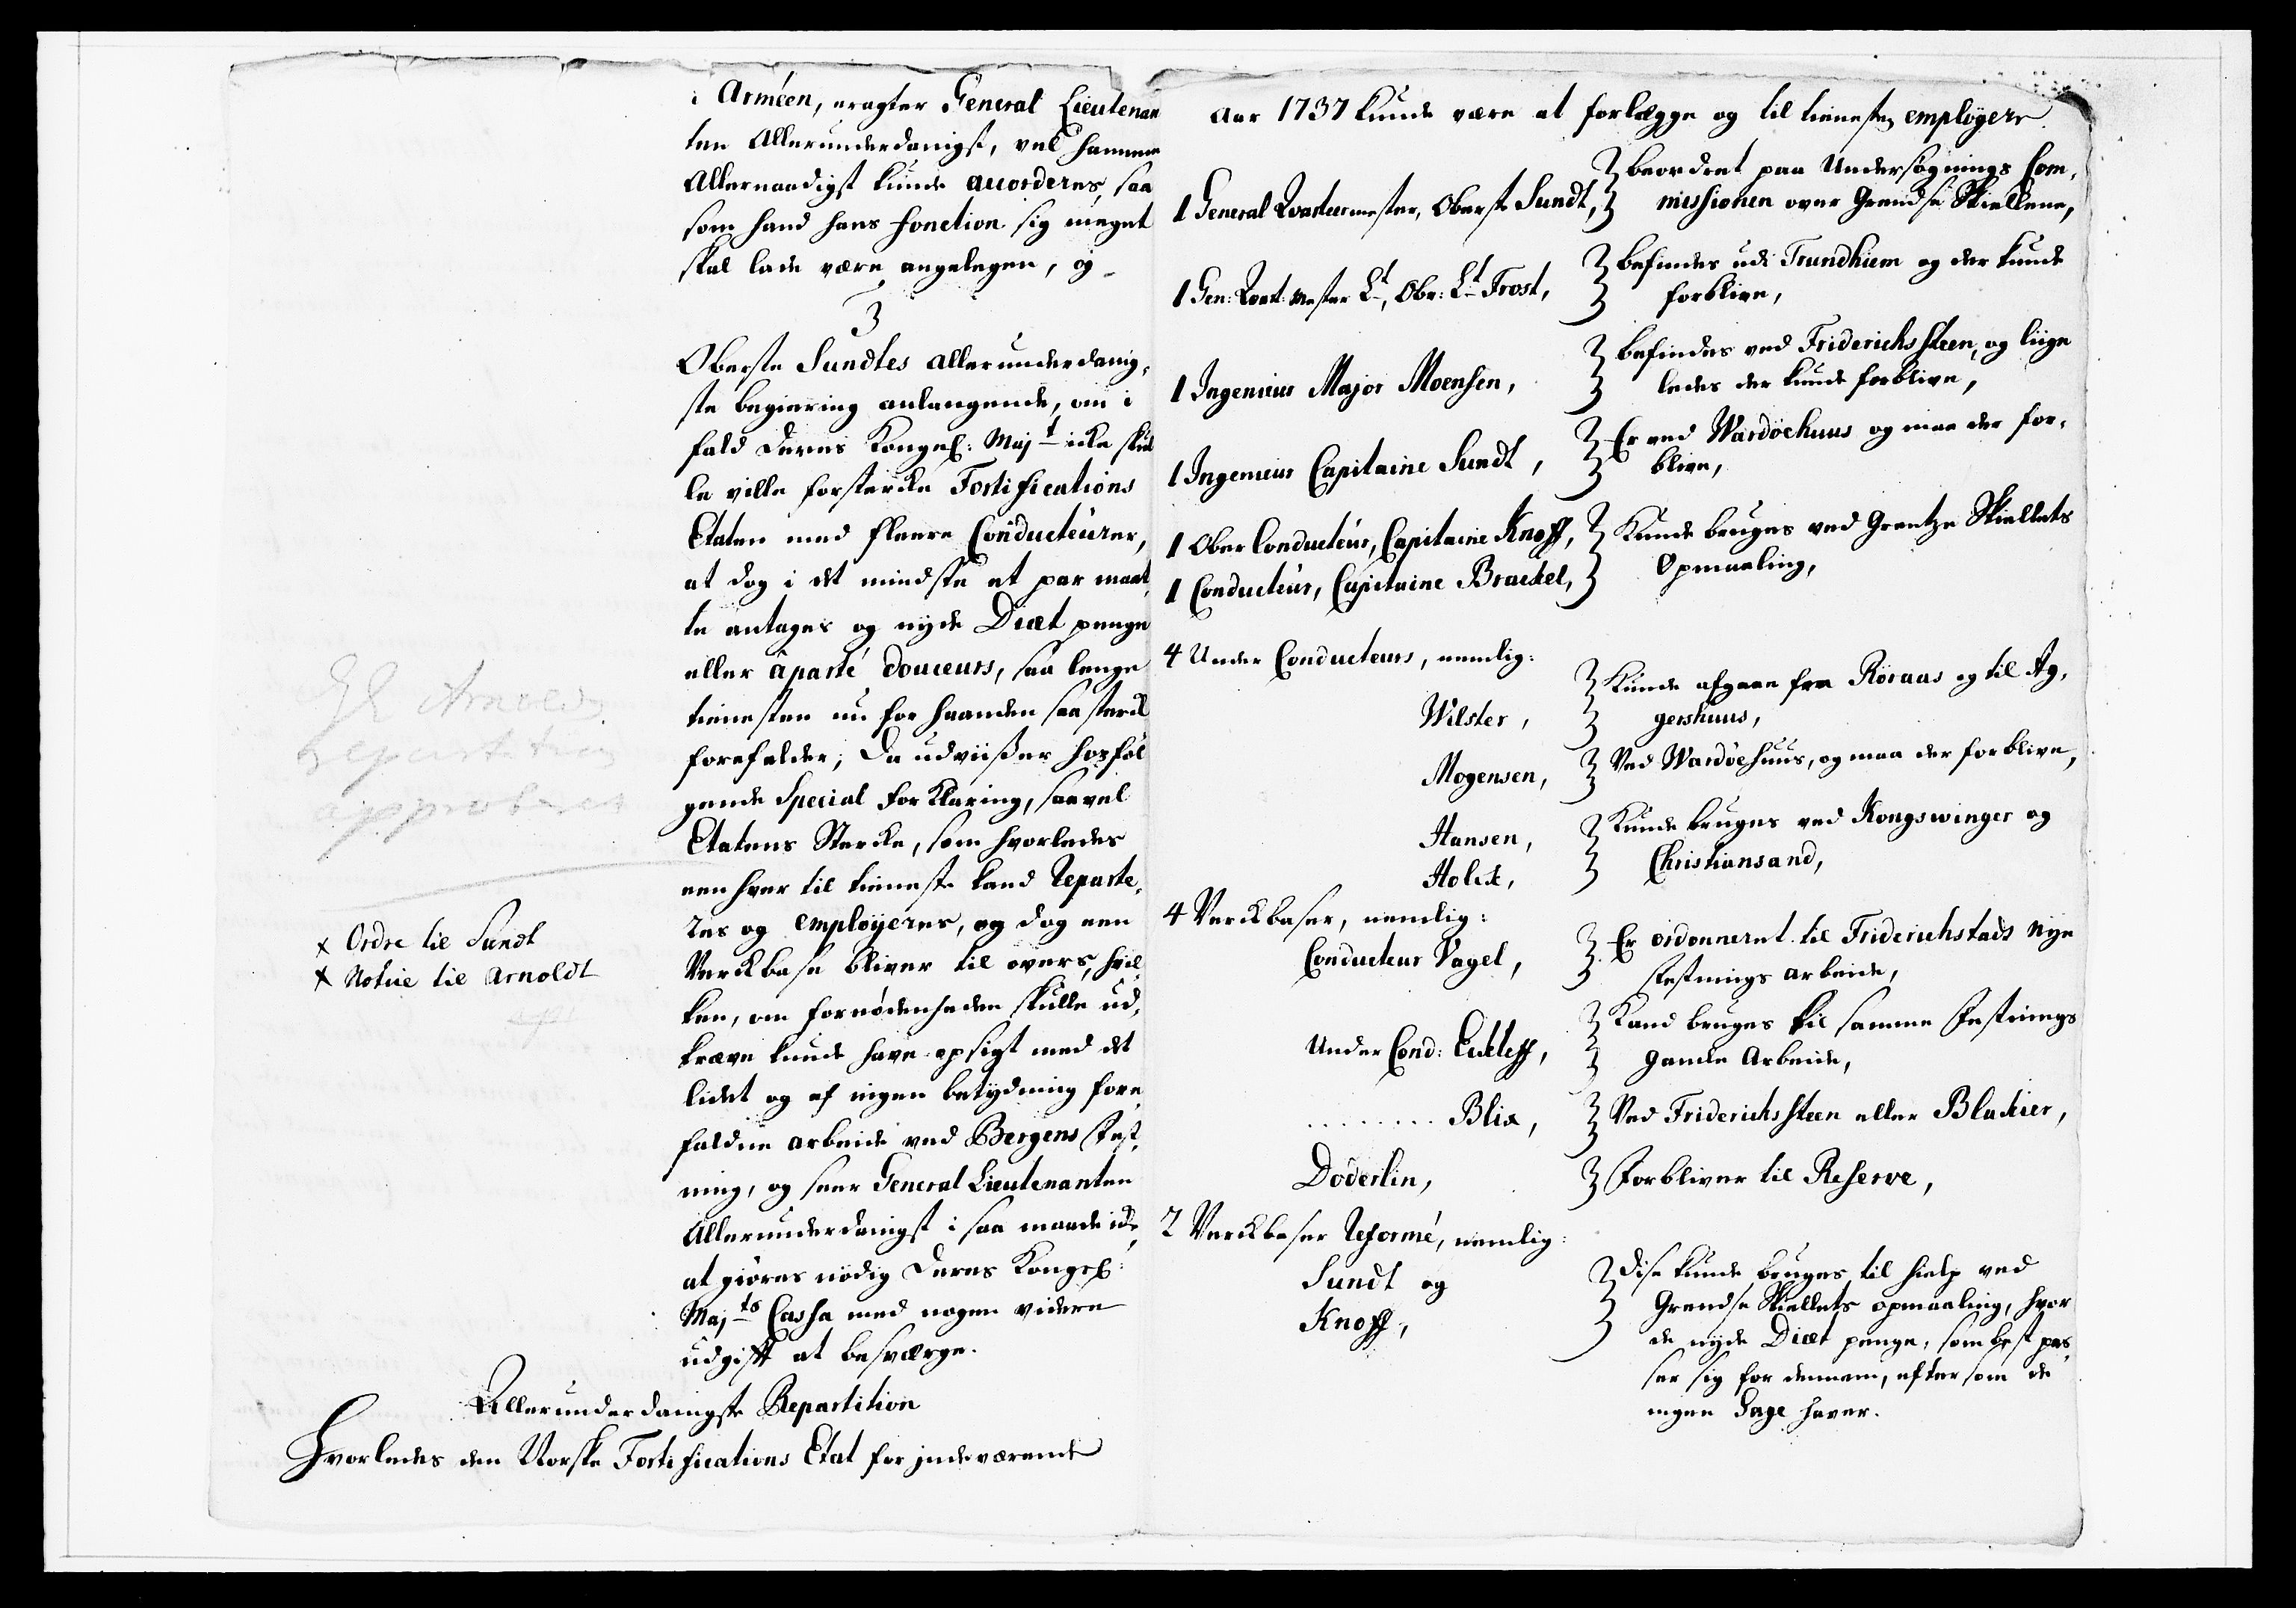 i Arméen, eragter General Lieutenan
ten Allerunderdanigst, vel hamme
Allernaadigst kunde accorderes, saa
som hand hans fonction sig meget
skal lade være angelegen, og
3
Oberste Sundtes allerunderdanig,
ste begiering anlangende, om i
fald Deres Kongel: Maj.t icke skul
le ville forstercke Fortifications
Etaten med fleere Conducteurer,
at dog i det mindste et par maat
te antages og nyde Diæt penge
eller áparté douceurs, saa lenge
tienesten nu for haanden saa sterck
forefalder; Da udviiser hosføl
gende Special Forklaring, saavel
Etatens Stercke, som hvorledes
een hver til tieneste kand reparte,
res og employeres, og dog een
Verckbase bliver til overs, hvil
ken, om fornødenheden skulle ud,
kræve kunde have opsigt med det
lidet og af ingen betydning fore
faldne arbeide ved Bergens Fest,
ning, og seer General Lieutenanten
Allerunderdanigst i saa maade icke
at giøres nødig Deres Kongel:
Maj.ts Cassa med nogen videre
udgifft at besværge.
Gl Arnoldts
repartition
approberes
x Ordre til Sundt
x Notice til Arnoldt
Allerunderdanigste Repartition
Hvorledes den Norske Fortifications Etat for indeværende
Aar 1737 kunde være at forlegge og til tienesten employere
1 General Qvarteermester, Oberste Sundt, beordret paa Undersøgnings Com,
missionen over Grendse Skiellene,
1 Gen: Qvart: mester Lt, Obr: Lt Frost, befindes udi Trundhiem og der kunde
forblive,
1 Ingenieur Major Moensen, befindes ved Friderichssteen, og liige
ledes der kunde forblive,
1 Ingenieur Capitaine Sundt, Er ved Wardöehuus og maa der for,
blive,
1 Ober Conducteur, Capitaine Knoff, Kunde bruges ved Grentze Skiellets
1 Conducteur, Capitaine Brackel, Opmaaling,
4 Under Conducteurs, nemlig:
Wilster, Kunde afgaae fra Röraas og til Ag,
gershuus,
Mogensen, Ved Wardöehuus, og maa der forblive,
Hansen, Kunde bruges ved Kongswinger og
Holck, Christiansand,
4 Verckbaser, nemlig:
Conducteur Vagel, Er ordonneret til Friderichstads nye
Festnings arbeide,
Under Cond: Eickleff, Kand bruges til samme Festnings
gamle Arbeide,
........ Blix, Ved Friderichssteen eller Blackier,
Doderlin, Forbliver til Reserve,
2 Verckbaser Reformé, nemlig:
Sundt og Disse kunde bruges til hielp ved
Knoff, Grendse Skiellets opmaaling, hvor
de nyde Diæt penge, som best pas,
ser sig for dennem, efter som de
ingen Gage haver.